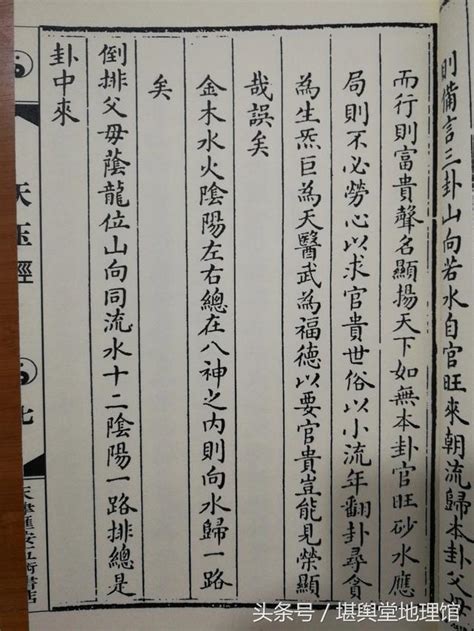 則備言三卦山向若水自官旺來朝流歸本卦父
而行則富貴聲名顯揚天下如無本卦官旺砂水應
局則不必勞心以求官貴世俗以小流年翻卦尋貪
為生炁巨為天醫武為福德以要官貴豈能見榮顯
哉誤矣
金木水火陰陽左右總在八神之內則向水歸一路
矣
倒排父母蔭龍位山向同流水十二陰陽一路排總是
卦中來
天玉經
头条号 / 堪舆堂地理馆